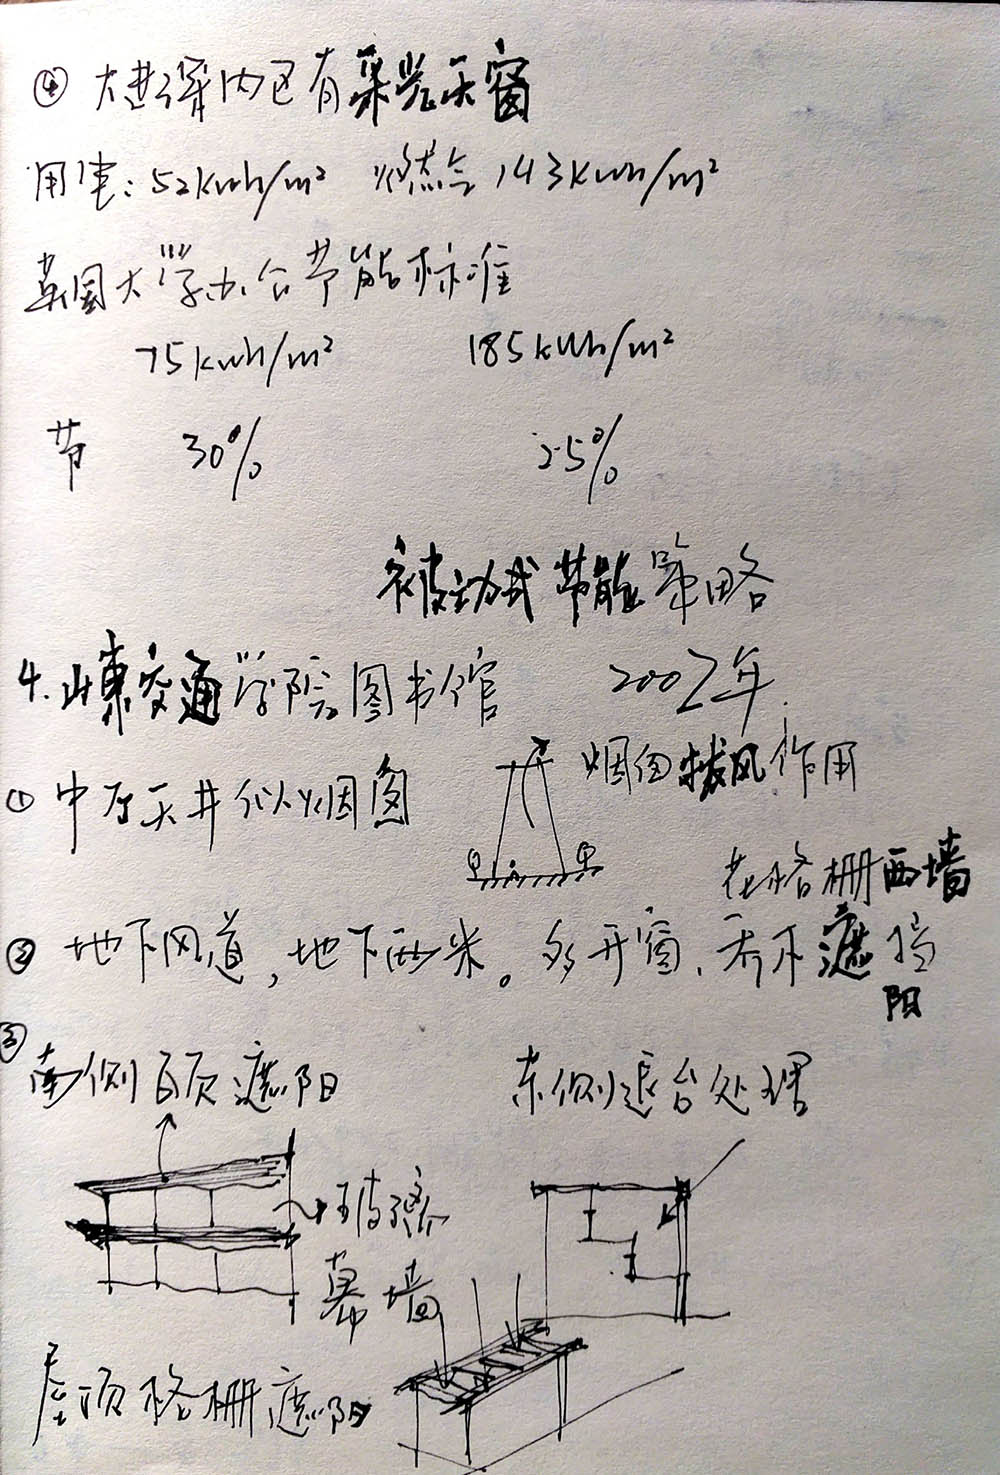 ④ 大进深内区有采光天窗
用电：52kwh/m² 燃气143kwh/m²
英国大学办公节能标准
75kwh/m² 185kwh/m²
节 30% 25%
被动式节能策略
4.山东交通学院图书馆 2002年
① 中庭天井似烟囱 烟囱拔风作用
花格栅西墙
② 地下风道，地下两米。多开窗、
遮挡
阳
③
南侧 遮阳 东侧退台处理
玻璃
幕墙
屋顶格栅遮阳